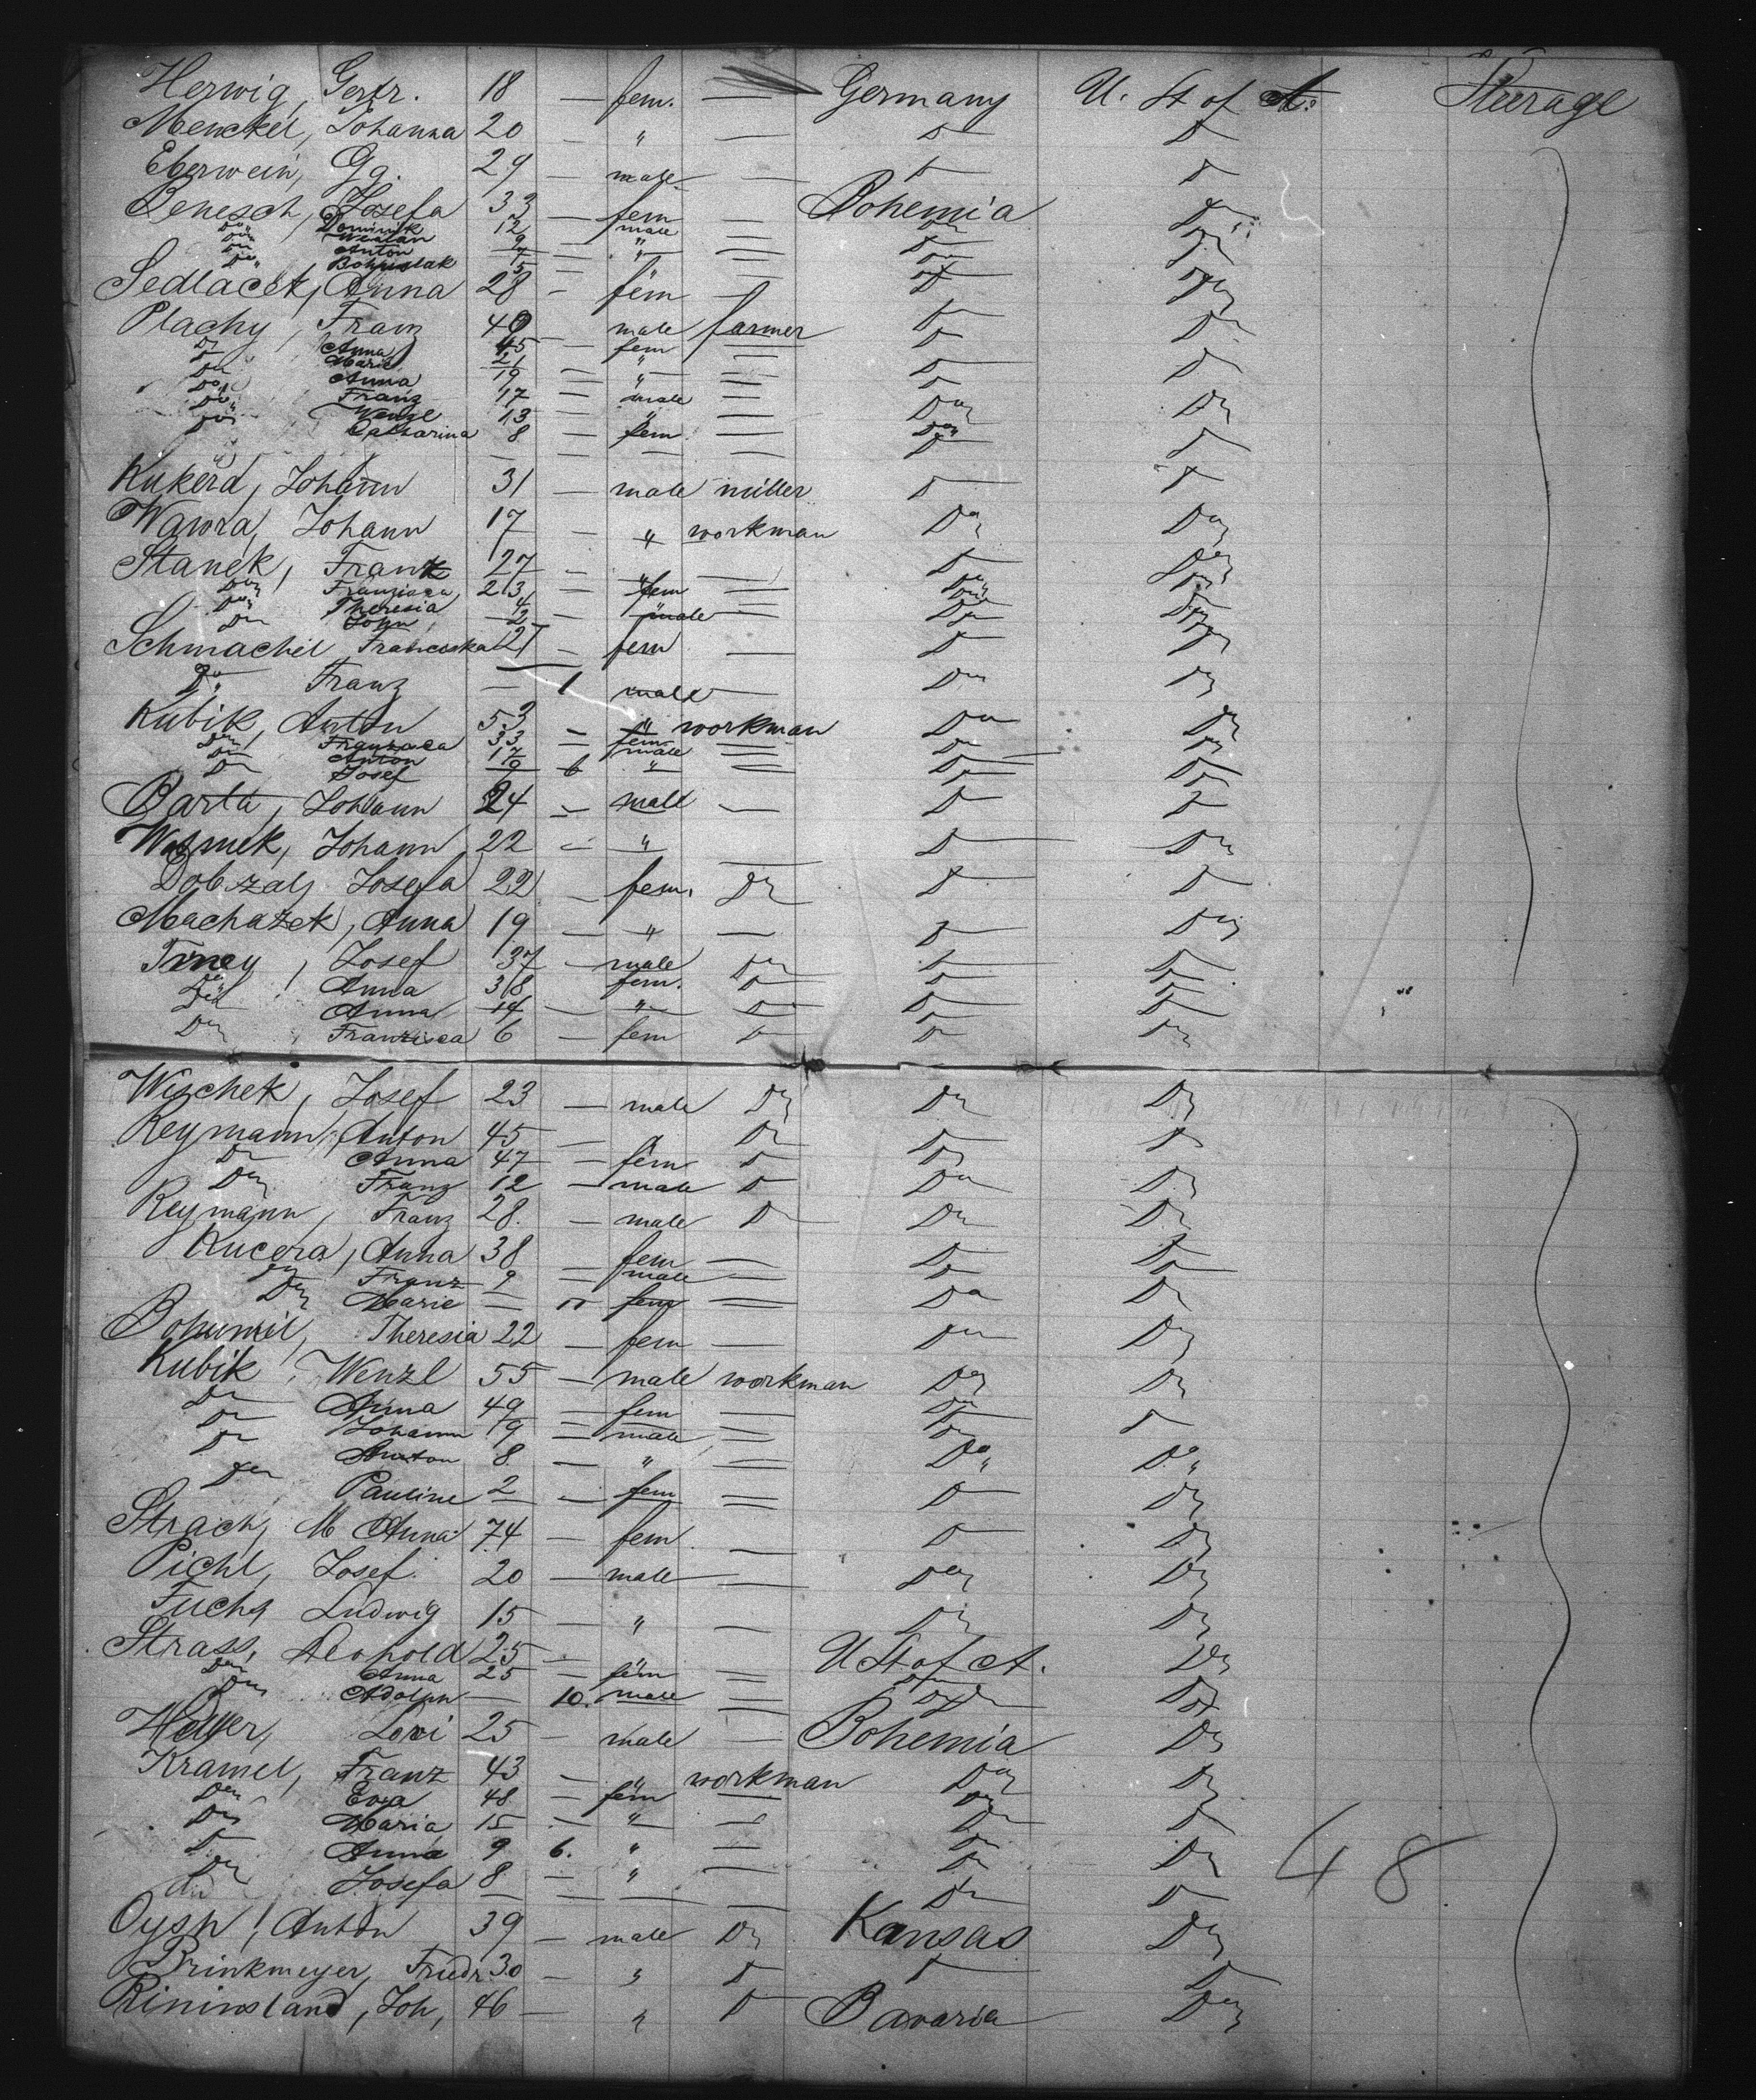 Herwig, Gertr. 18 — fem. — Germany U. St of A. Steerage
Menckel, Johanna 20 — " — Do Do
Eberwein, Gg. 29 — male — Do Do
Benesch, Josefa 33 — fem — Bohemia Do
Do Dominik 12 male — Do Do
Do Wenzlan 9 — " — Do Do
Do Anton 7 — " — Do
Do 5 — Do
Sedlacek, Anna 28 — fem — Do Do
Plachy, Franz 40 — male farmer Do Do
Do Anna 45 — fem — Do
Do Marie 21 — " — Do Do
Do Anna 19 — " — Do
Do Franz 17 — male — Do Do
Do Wenzl 13 — " — Do
Do Catharina 8 — fem — Do Do
Kukerd, Johann 31 — male miller Do Do
Wawra, Johann 17 — " workman Do Do
Stanek, Frank 27 — " — Do Do
Do Franzisca, 23 — fem — Do Do
Do Theresia 4 — " — Do Do
Do John 2 — male — Do Do
Schmachil Franceska 27 — fem — Do Do
Do Franz — 1 male — Do Do
Kubik, Anton 53 — " workman Do Do
Do Franzisca 33 — fem — Do Do
Do Anton 17 male — Do Do
Do Josef 9 6 " — Do Do
Barta, Johann 24 — male — Do Do
Johann 22 — " — Do Do
Dobszaly Josefa 22 — fem. Do Do Do
Machazek, Anna 19 — " — Do Do
Josef 37 — male Do Do Do
Do Anna 38 fem. Do Do Do
Do Anna 14 — " — Do Do Do
Do Franzisca 6 — fem Do Do Do
Wischek, Josef 23 — male Do Do Do
Reymann, Anton 45 — Do Do Do
Do Anna 47 — fem Do Do
Do Franz 12 — male Do Do Do
Reymann, Franz 28. — male Do Do Do
Kucera, Anna 38 — fem — Do Do
Do Franz 9 — male — Do Do
Do Marie — 11 fem — Do Do
Bohumil, Theresia 22 — fem — Do Do
Kubik, Wenzl 55 — male workman Do Do
Do Anna 49 — fem — Do
Do Johann 19 — male — Do Do
Do Anton 8 — " — Do Do
Do Pauline 2 — fem — Do Do
Strach, M Anna 74 — fem — Do Do
Pichl, Josef. 20 — male — Do Do
Fuchs Ludwig 15 — " — Do Do
Strass, Leopold 25 — " — U St of A. Do
Do Anna 25 — fem — Do
Do Adolph — 10. male — Do Do
Levi 25 — male — Bohemia Do
Kramel, Franz 43 — " workman Do Do
Do Eva 48 — fem — Do
Do Maria 15 — " — Do Do
Do Anna 9 6. " — Do Do
Do Josefa 8 — " — Do Do
48
Anton 39 — male Do Kansas Do
Brinkmeyer, Friedr 30 — " Do Do Do
Rininsland, Joh, 46 — " Do Bavaria Do